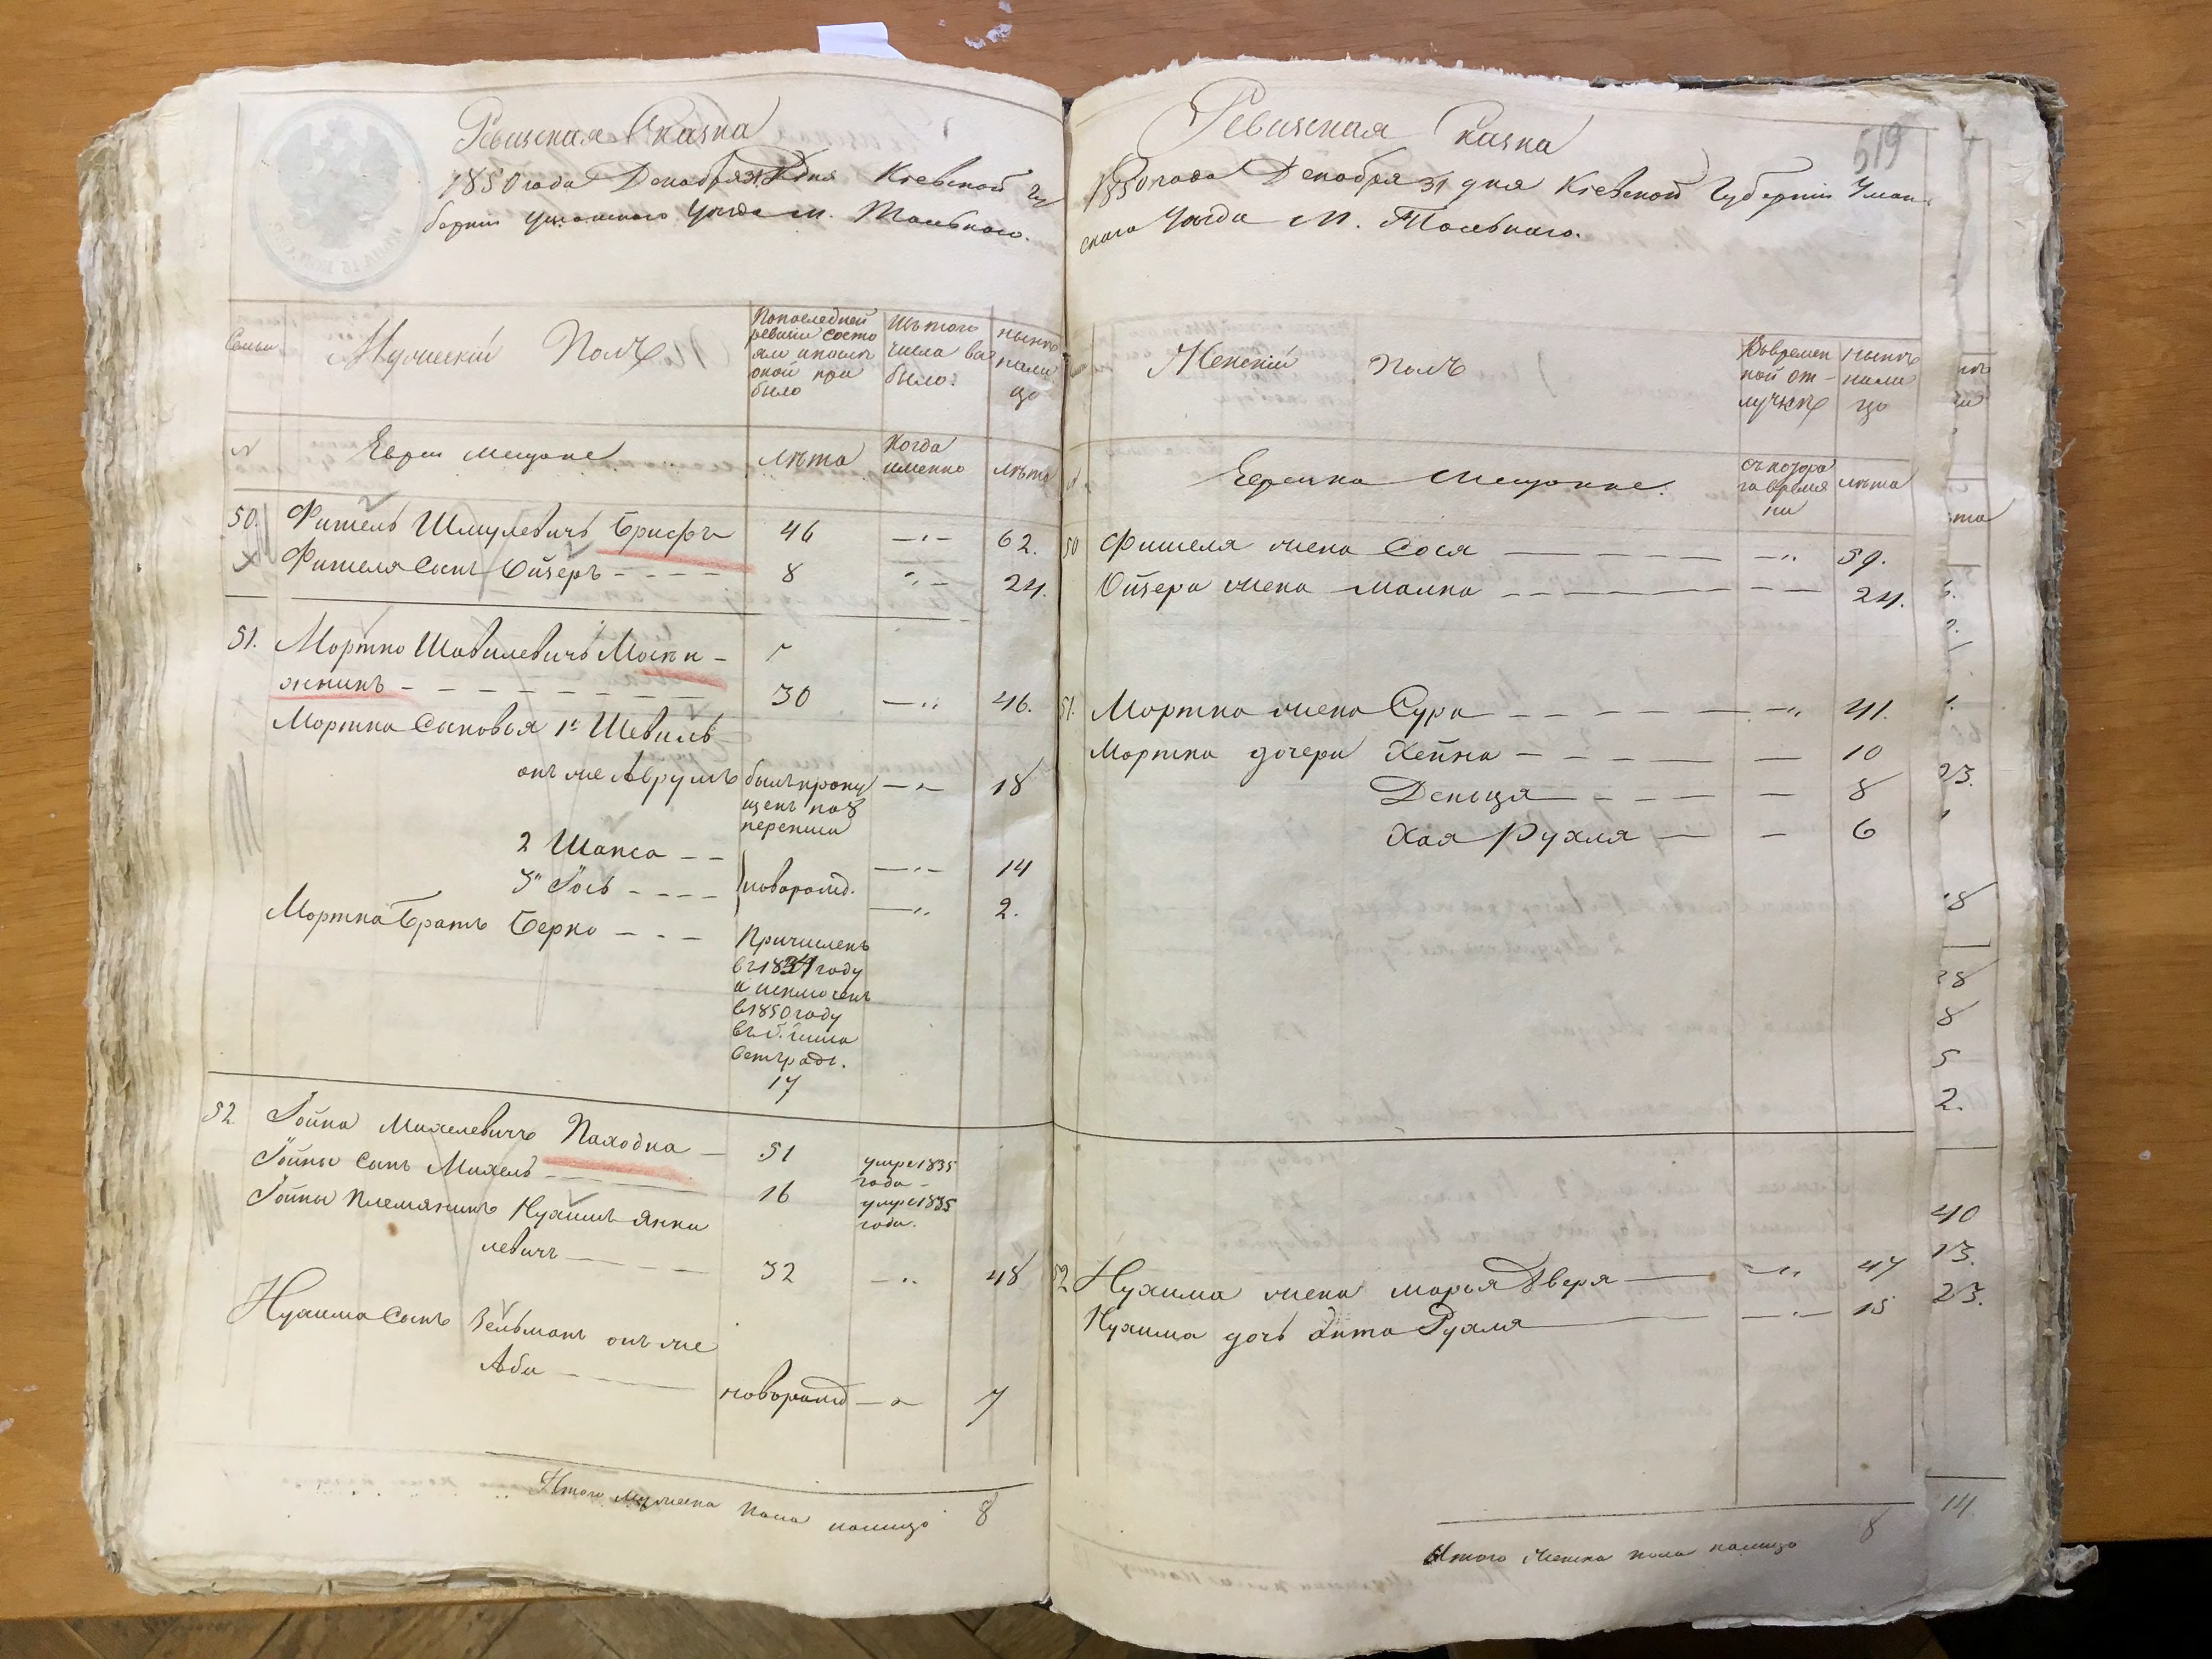 Ревизская Сказка
1850 года Декабря 31 дня Кіевской Гу
берніи Уманскаго Уезда м. Тальнаго.
Семьи
Мужескій Полъ
По последней
ревизіи состо
яло и после
оной при
было
Изъ того
числа вы
было.
ныне
нали
цо
№
Евреи мещане
лѣта
Когда
именно
лѣта
50. Фишель Шмулевичъ Брифъ 46 —"— 62.
Фишеля Сынъ Ойзеръ - - - - 8 "- 24.
51. Мортко Шевилевичъ
жникъ - - - - - - - - 30 —" 46.
Мортка Сыновья 1й Шевиль
онъ же Аврумъ былъ пропу —"— 18
щенъ по 8
переписи
2 Шапса - - —"— 14
3й Іось - - - - новорожд. —" 2.
Мортка Братъ Берко - - - Причисленъ
въ 1834 году
и исключенъ
въ 1850 году
17
52. Іойна Михелевичъ Находка — 51 умре 1835
года —
Іойны Сынъ Михель - - - 16 умре 1835
года.
Іойны племянникъ Нухимъ Янке
левичъ - - - - 32 —" 48
Нухима Сынъ Зельманъ онъ же
Аба - - - - новорожд —"— 7
Итого мужеска пола налицо 8
Ревизская Сказка
519
1850 года Декабря 31 дня Кіевской Губерніи Уман
скаго Уезда М. Тальнаго.
Женскій Полъ
Во времен
ной от-
лучкѣ
ныне
нали
цо
№
Еврейки Мещанке.
съ котора
го време
ни
лѣта
50 Фишеля жена Сося — — — — —" 59.
Ойзера жена Малка — — — — — — 24.
51. Мортка жена Сура — — — — —" 41.
Мортка дочери Хейна — — — — — 10
Деньця — — — — — 8
Хая Рухля — — 6
52 Нухима жена Марья Двера —" 47
Нухима дочь Энта Рухля —"— 15
Итого женска пола налицо 8
23.
18
28
8
5
2.
40
13.
23.
14